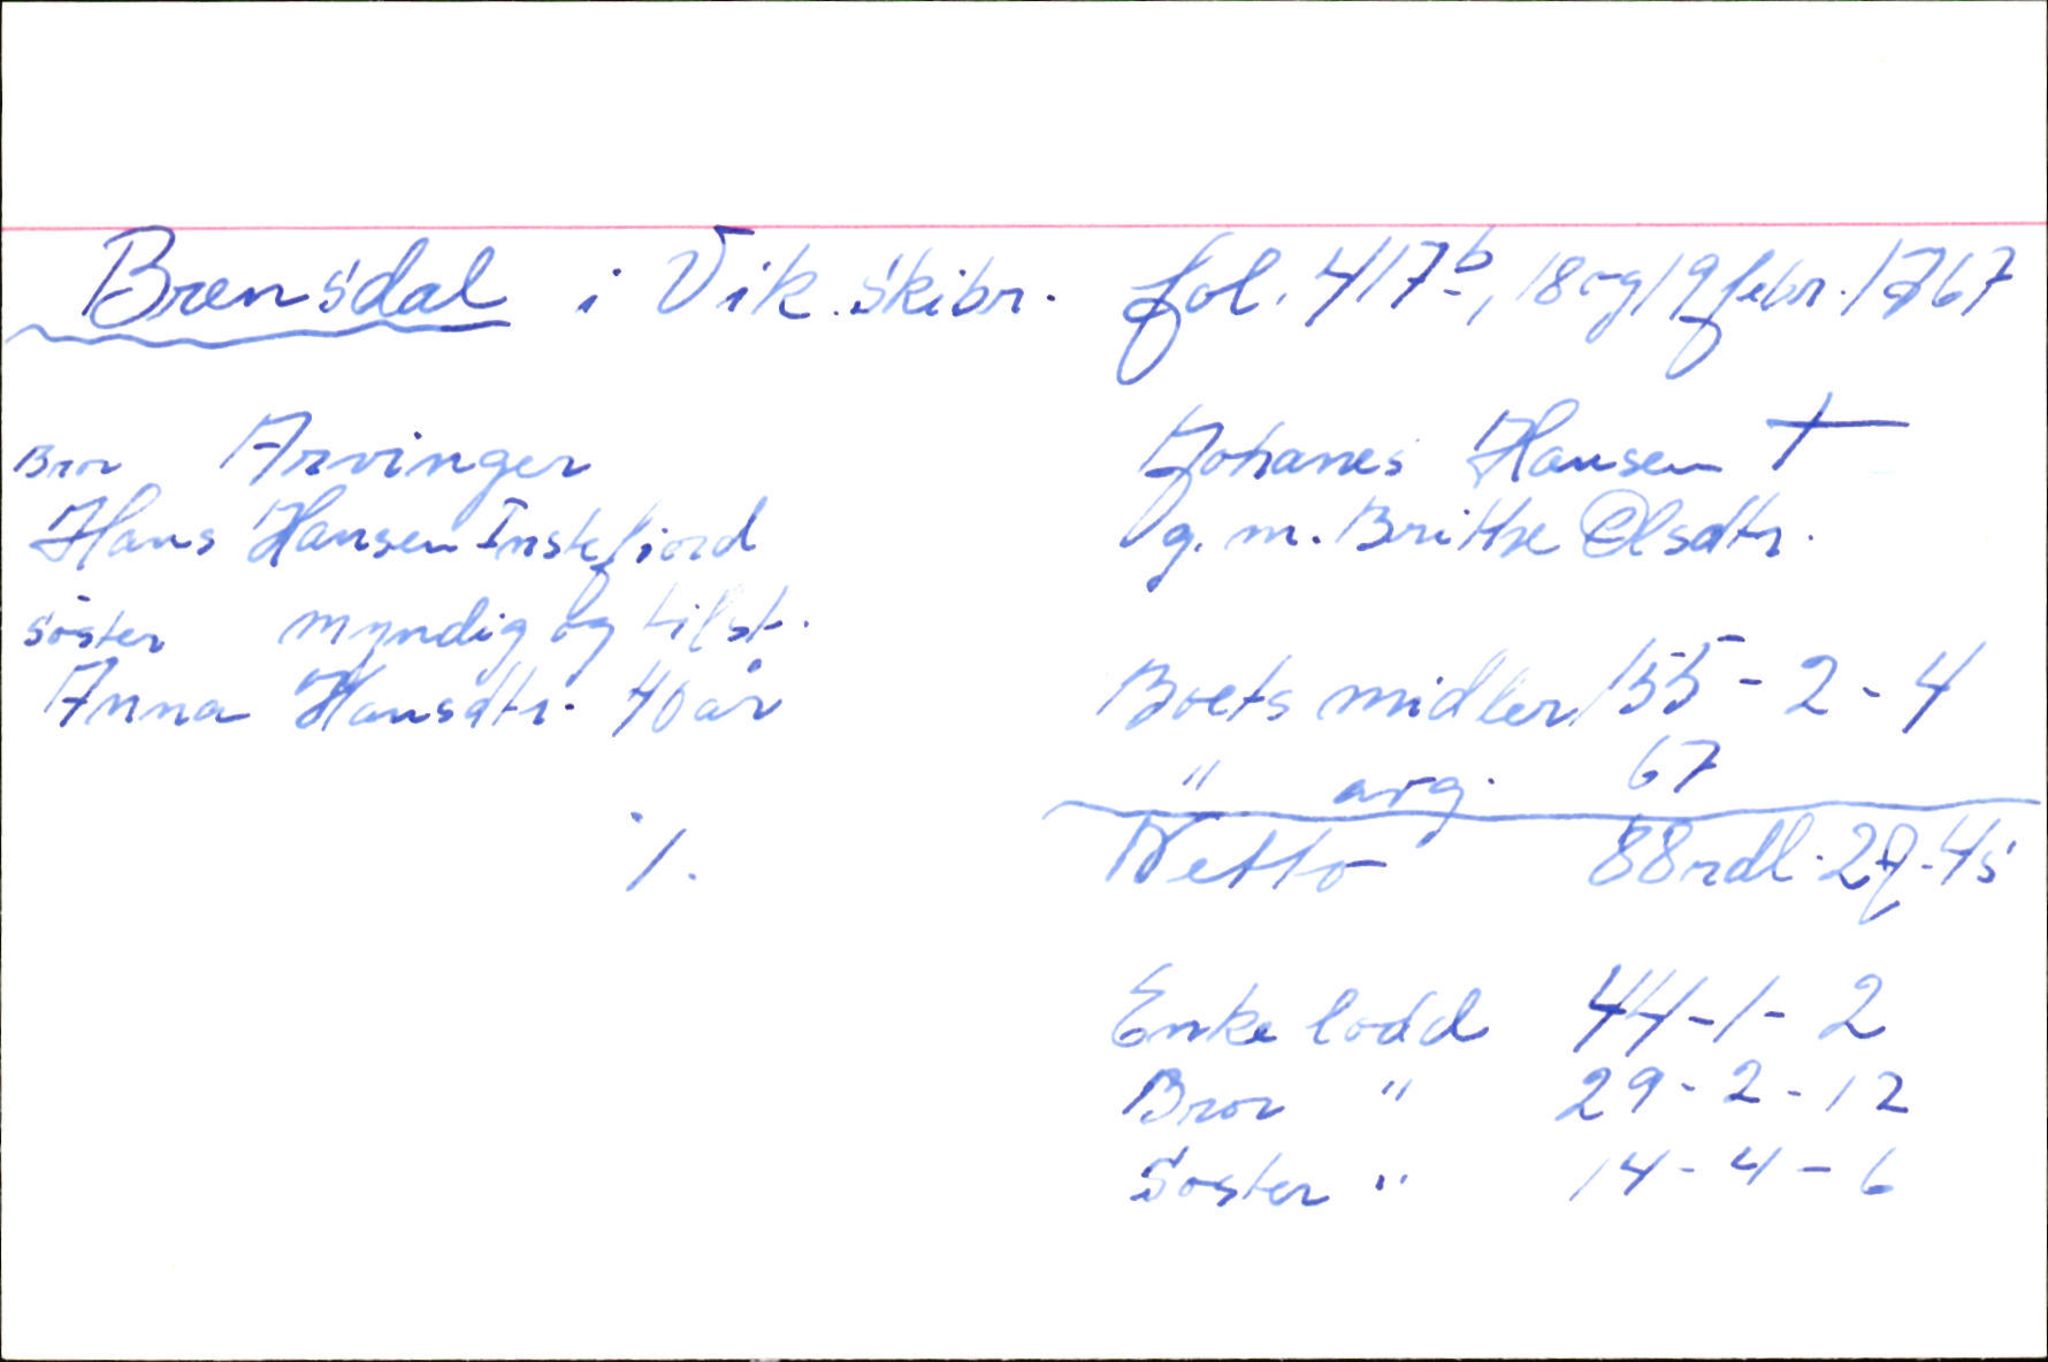 Brensdal i Vik. Skibr. fol. 417b, 18 og 19 febr. 1767
Bror Arvinger
Hans Hansen Instefjord
søster myndig og tilst.
Anna Hansdtr. 40 år
./.
Johanes Hansen †
g. m. Brithe Olsdtr.
Boets midler 155 - 2 - 4
" avg. 67
Netto 88 rdl - 2 - 4 s
Enke lodd 44 - 1 - 2
Bror " 29 - 2 - 12
Søster " 14 - 4 - 6